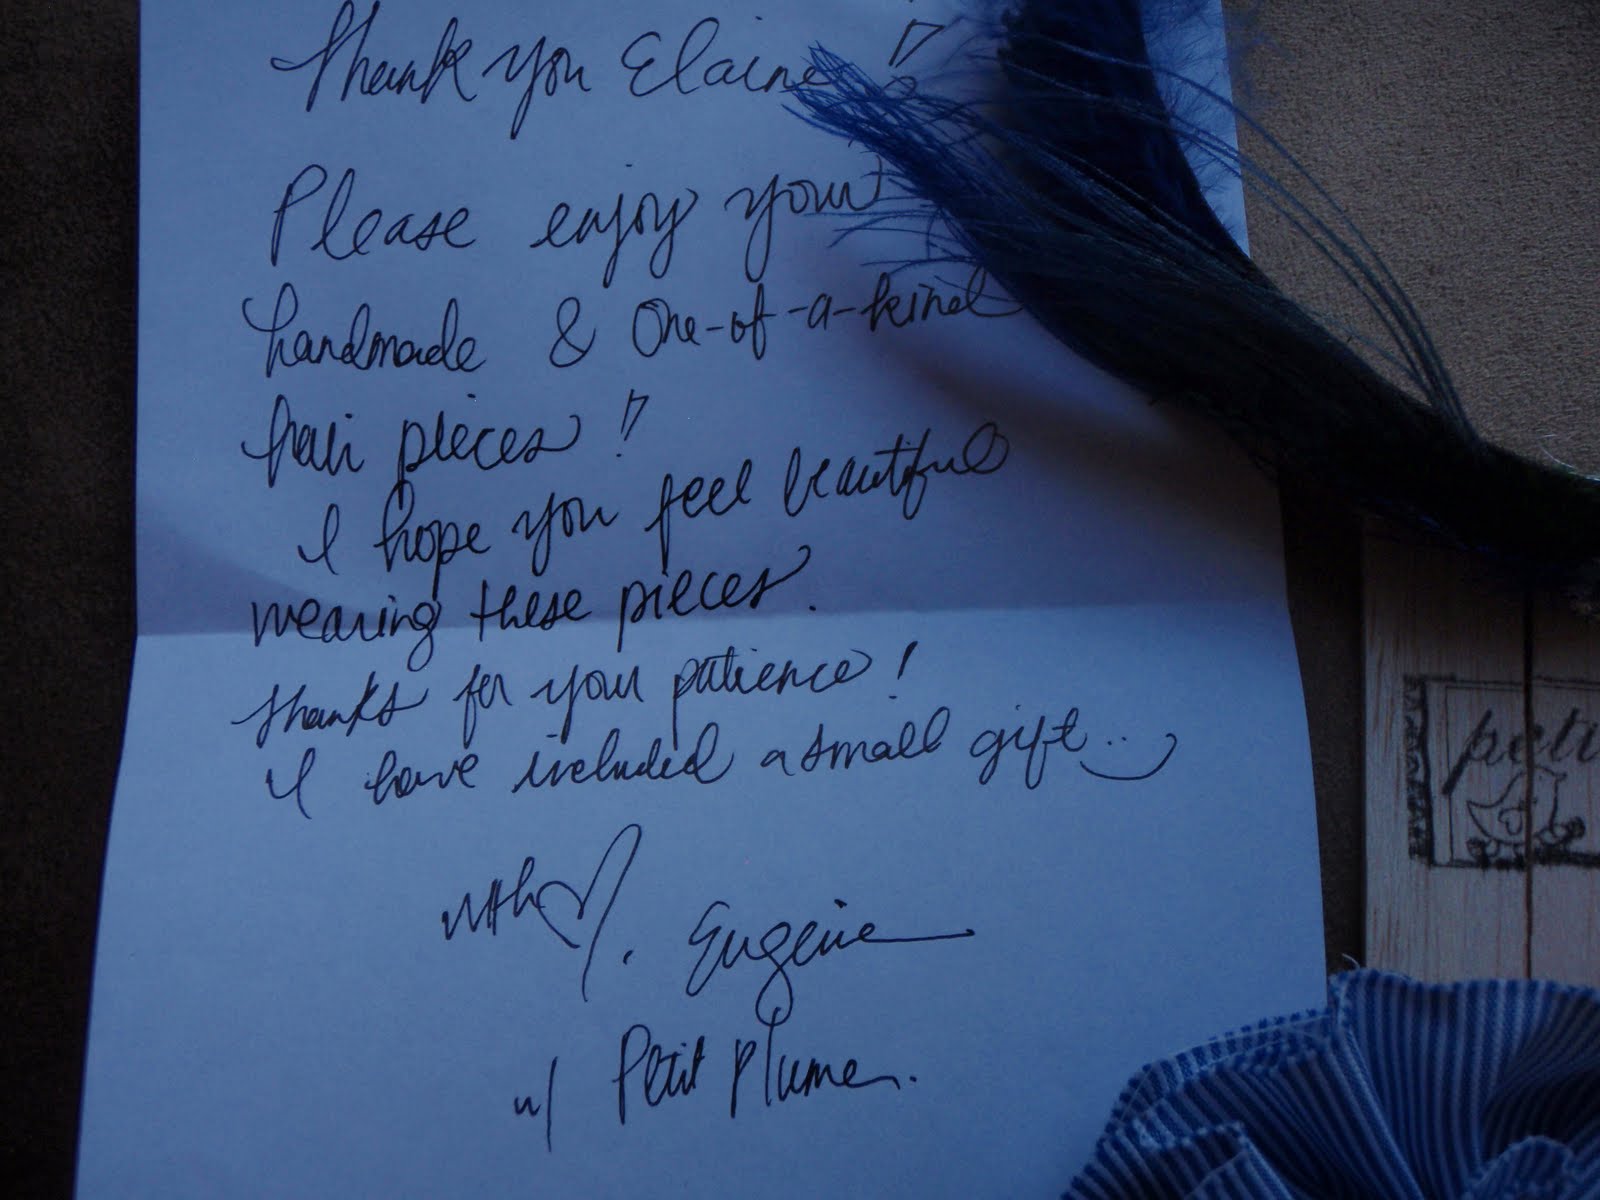 Thank you Elaine!
Please enjoy your
handmade & one-of-a-kind
hair pieces!
I hope you feel beautiful
wearing these pieces.
thanks for your patience!
I have included a small gift..
with ♡, Eugenie
w/ Petit Plume.
peti